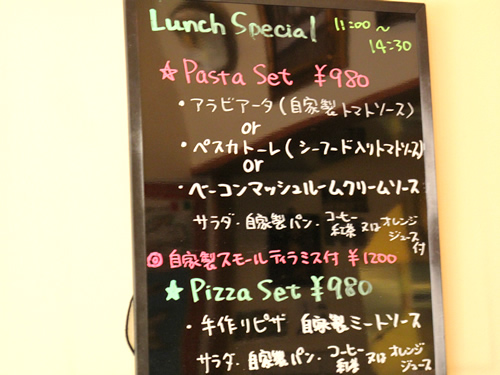 Lunch Special 11:00～
14:30
☆Pasta Set ¥980
・アラビアータ(自家製トマトソース)
or
・ペスカトーレ(シーフード入りトマトソース)
or
・ベーコンマッシュルームクリームソース
サラダ・自家製パン・コーヒー 紅茶 又は オレンジジュース付
◎自家製スモールティラミス付 ¥1200
★Pizza Set ¥980
・手作りピザ 自家製ミートソース
サラダ・自家製パン・コーヒー 紅茶 又は オレンジジュース